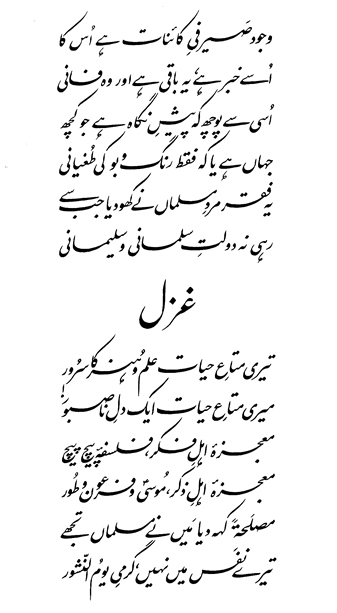 وجود صیرفیِ کائنات ہے اُس کا
اُسے خبر ہے یہ باقی ہے اور وہ فانی
اُسی سے پوچھ کہ پیشِ نگاہ ہے جو کچھ
جہاں ہے یا کہ فقط رنگ و بو کی طُغیانی
یہ فقر مردِ مسلماں نے کھو دیا جب سے
رہی نہ دولتِ سلمانی و سلیمانی
غزل
تیری متاعِ حیات علم و ہنر کا سُرور
میری متاعِ حیات ایک دلِ ناصبور
معجزۂ اہلِ فکر، فلسفۂ پیچ پیچ
معجزۂ اہلِ ذکر، مُوسیٰؑ و فرعون و طُور
مصلحتہً کہہ دیا مَیں نے مسلماں تجھے
تیرے نفَس میں نہیں، گرمیِ یومُ النّشور